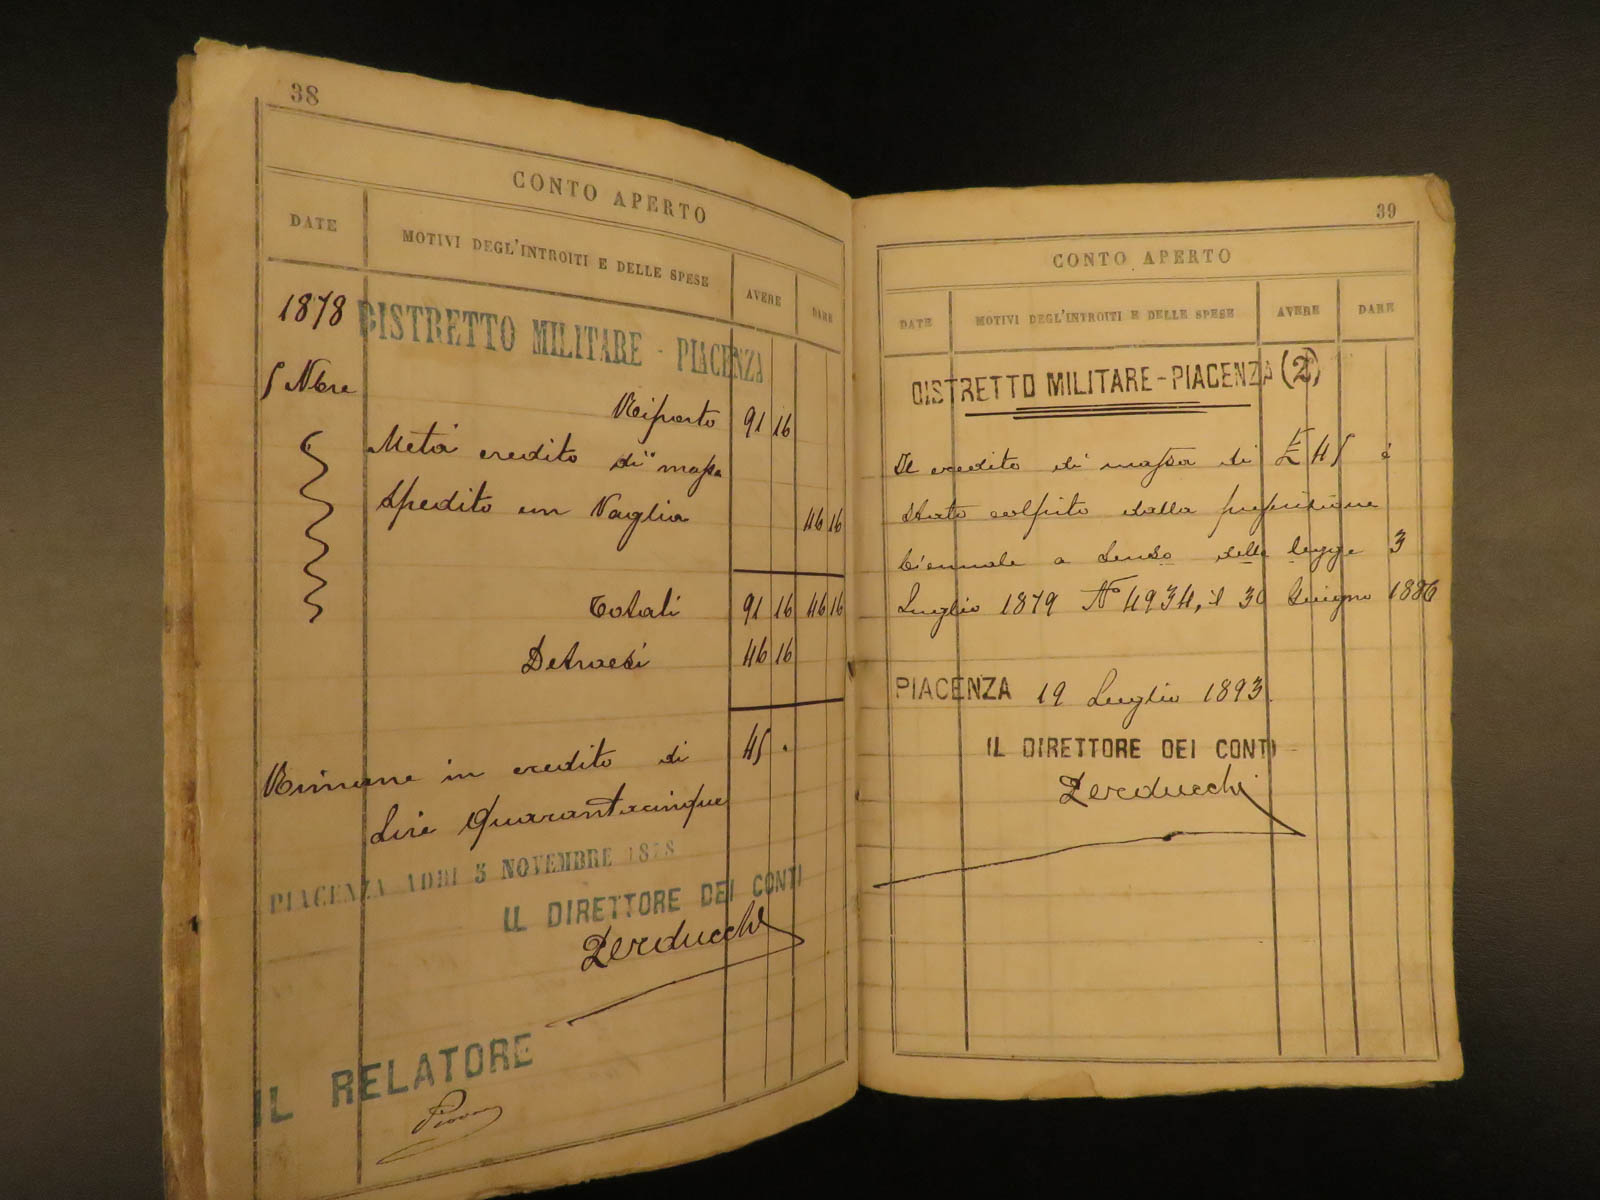 38
CONTO APERTO
DATE MOTIVI DEGL'INTROITI E DELLE SPESE AVERE DARE
1878 DISTRETTO MILITARE - PIACENZA
5 Nbre
Riporto 91 16
Metà credito di massa
spedito un Vaglia 46 16
Totali 91 16 46 16
Detraesi 46 16
Rimane in credito di 45 .
Lire Quarantacinque
PIACENZA ADDI 5 NOVEMBRE 1878
IL DIRETTORE DEI CONTI
Perducchi
IL RELATORE
39
CONTO APERTO
DATE MOTIVI DEGL'INTROITI E DELLE SPESE AVERE DARE
DISTRETTO MILITARE - PIACENZA (2)
Il credito di massa di £ 45 è
stato colpito dalla prescrizione
biennale a senso della legge 3
Luglio 1879 No 4934, il 30 Giugno 1886
PIACENZA 19 Luglio 1893.
IL DIRETTORE DEI CONTI
Perducchi